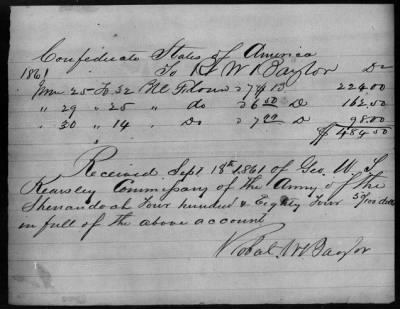 Confederate States of America
1861 To R W Baylor Dr
June 25 To 32 Bbl Flour @ 7 224.00
" 29 " 25 " do @ 6 50 D 162.50
" 30 " 14 " Do @ 7 00 D 98.00
$ 484.50
Received Sept 18th 1861 of Geo. W. S.
Kearsley Commissary of the Army of the
Shenandoah Four hundred & Eighty Four 50/100 dolls
in full of the above account
Robt. W Baylor